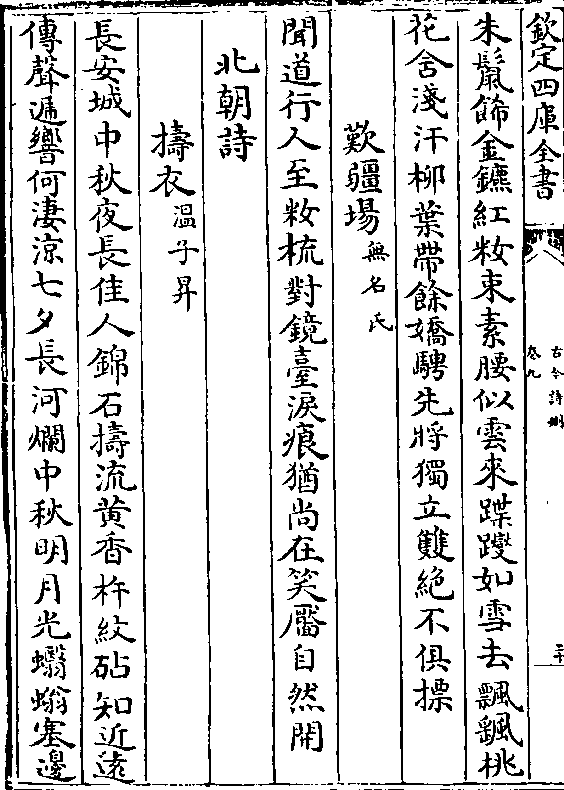 欽定四庫全書
古今詩刪
卷九
二十
朱鬛飾金鑣紅粧束素腰似雲來蹀躞如雪去飄颻桃
花含淺汗柳葉帶餘嬌騁先將獨立雙絶不俱摽
歎疆場無名氏
聞道行人至粧梳對鏡臺淚痕猶尚在笑靨自然開
北朝詩
擣衣温子昇
長安城中秋夜長佳人錦石擣流黄香杵紋砧知近遠
傳聲遞響何淒凉七夕長河爛中秋明月光蠮螉塞邊